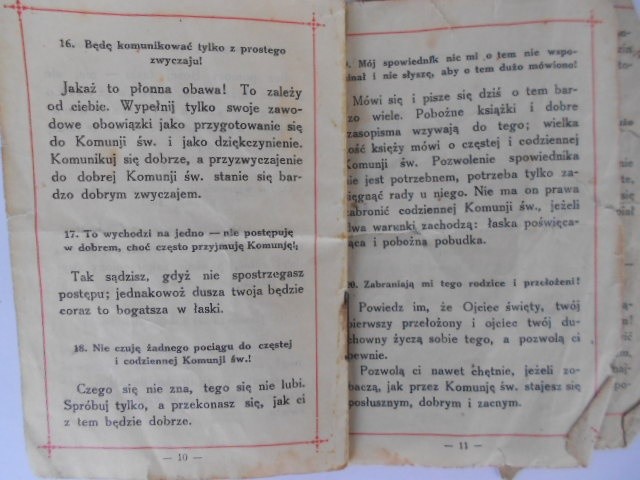 16. Będę komunikować tylko z prostego
zwyczaju!
Jakaż to płonna obawa! To zależy
od ciebie. Wypełnij tylko swoje zawo-
dowe obowiązki jako przygotowanie się
do Komunji św. i jako dziękczynienie.
Komunikuj się dobrze, a przyzwyczajenie
do dobrej Komunji św. stanie się bar-
dzo dobrym zwyczajem.
17. To wychodzi na jedno — nie postępuję
w dobrem, choć często przyjmuję Komunję!;
Tak sądzisz, gdyż nie spostrzegasz
postępu; jednakowoż dusza twoja będzie
coraz to bogatsza w łaski.
18. Nie czuję żadnego pociągu do częstej
i codziennej Komunji św.!
Czego się nie zna, tego się nie lubi.
Spróbuj tylko, a przekonasz się, jak ci
z tem będzie dobrze.
— 10 —
. Mój spowiednik nic mi o tem nie wspo-
nał i nie słyszę, aby o tem dużo mówiono!
Mówi się i pisze się dziś o tem bar-
zo wiele. Pobożne książki i dobre
zasopisma wzywają do tego; wielka
ość księży mówi o częstej i codziennej
Komunji św. Pozwolenie spowiednika
ie jest potrzebnem, potrzeba tylko za-
ięgnąć rady u niego. Nie ma on prawa
abronić codziennej Komunji św., jeżeli
wa warunki zachodzą: łaska poświęca-
ąca i pobożna pobudka.
20. Zabraniają mi tego rodzice i przełożeni!
Powiedz im, że Ojciec święty, twój
pierwszy przełożony i ojciec twój du-
chowny życzą sobie tego, a pozwolą ci
pewnie.
Pozwolą ci nawet chętnie, jeżeli zo-
baczą, jak przez Komunję św. stajesz się
posłusznym, dobrym i zacnym.
— 11 —